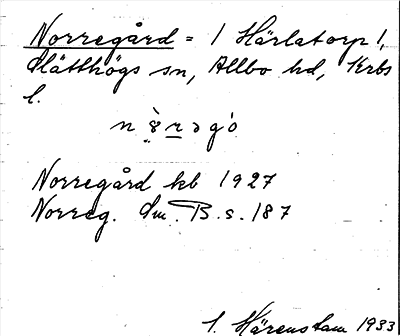 Norregård = 1 Härlatorp 1,
Slätthögs sn, Allbo hd, Krbs
l.
Norregård kb 1927
Norreg. Sm. B. s. 187
S. Härenstam 1933